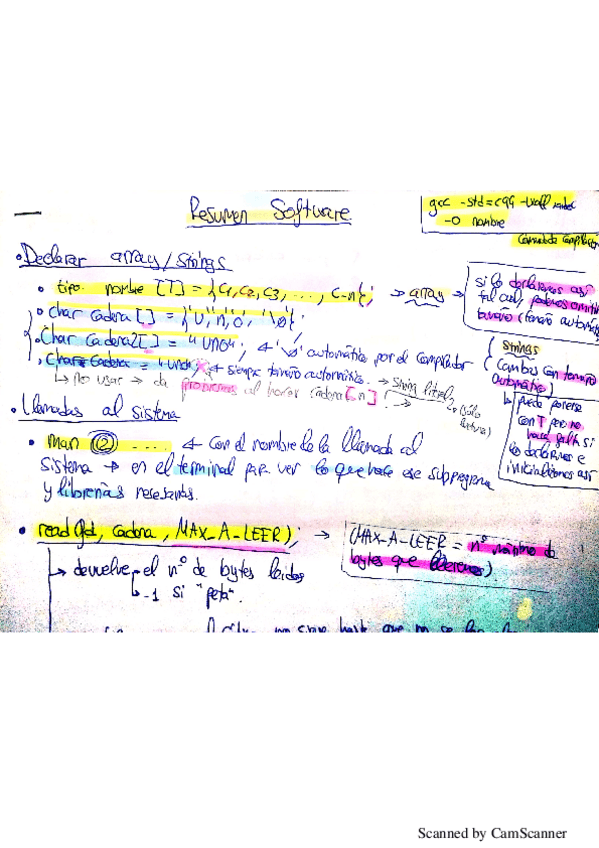 Resumen Software
gcc -std=c99 -Wall
-o nombre
Comando Compilación
• Declarar arrays/Strings
• tipo nombre [T] = {C1, C2, C3, ..., C-n}; → array →
si lo declaramos así
tal cual, podemos omitir
tamaño (tamaño automático
• char cadena [] = {'U','n','o','\0'};
• Char cadena2[] = "uno"; ← '\0' automático por el compilador
• Char* cadena = "uno"; ← siempre tamaño automático.
↳ No usar → da problemas al hacer cadena[n].
→ String literal
(sólo
lectura)
Strings
Cambas con tamaño
automático)
↳ puede ponerse
con T pero no
hace falta si
lo declaramos e
inicializamos así
• Llamadas al sistema
• man (2) ..... ← Con el nombre de la llamada al
sistema → en el terminal para ver lo que hace ese subprograma
y librerías necesarias.
• read(fd, cadena, MAX_A_LEER); →
(MAX_A_LEER = nº máximo de
bytes que leeremos)
↳ devuelve el nº de bytes leídos
↳ -1 si "peta".
hasta que no se
Scanned by CamScanner